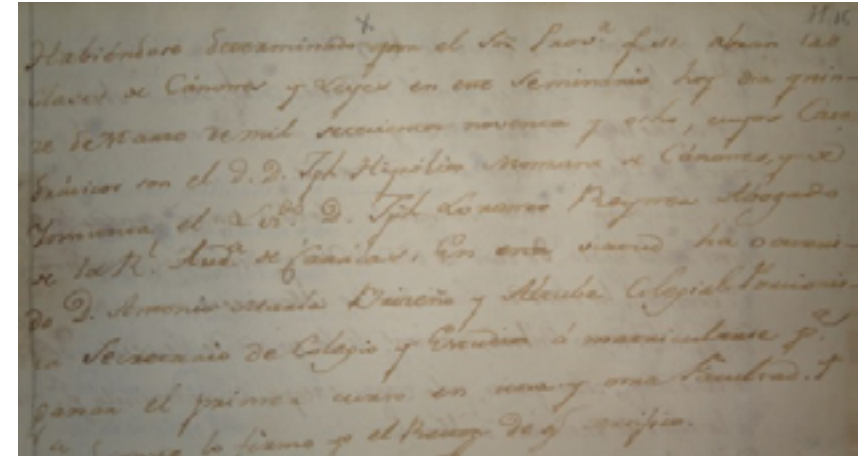 Habiéndose determinado por el Sor. Provor. q.e se abran las
Clases de Cánones y Leyes en este Seminario hoy dia quin-
ze de Marzo de mil setecientos noventa y ocho, cuyos Cate-
dráticos son el D. D. Jph Hipólito de Cánones, y de
el Liz.do D. Jph Lorenzo Reyna Abogado
de la Rl. Aud.a de Caracas. En esta virtud ha ocurri-
do D. Antonio y Colegial
Secretario de Colegio y Estudios á matricularse p.a
ganar el primer curso en una y otra Facultad. Y
lo firmo yo el Rector de q.e certifico.